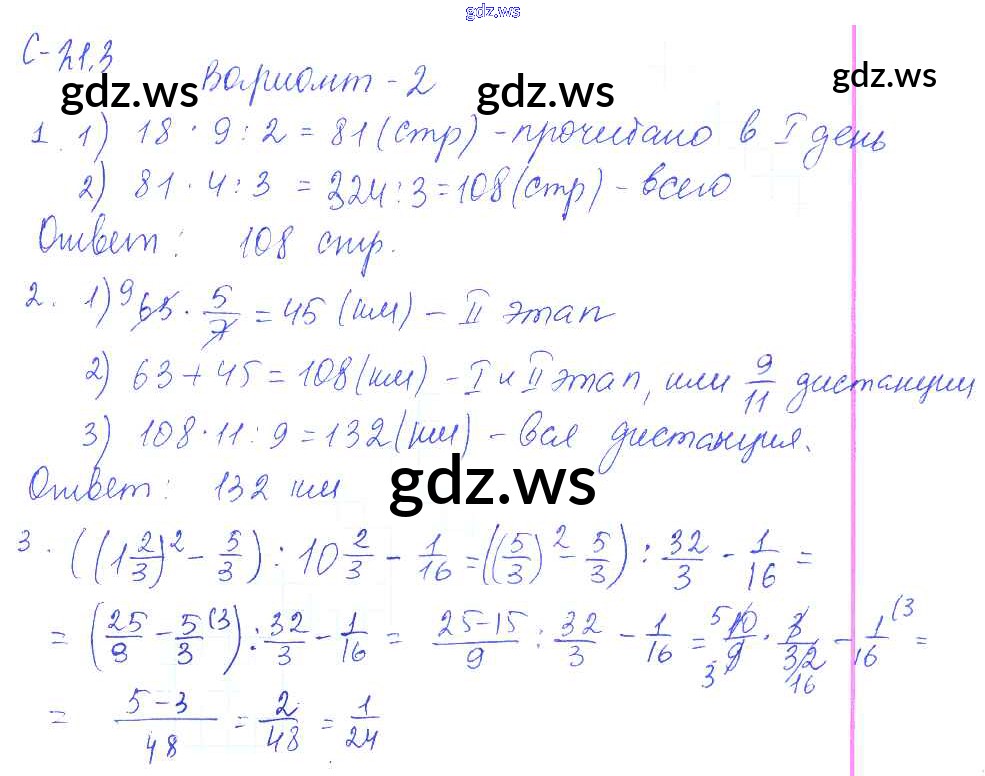 gdz.ws
С-21.3
Вариант-2
gdz.ws
gdz.ws
1. 1) 18 · 9 : 2 = 81 (стр) - прочитано в I день
2) 81 · 4 : 3 = 324 : 3 = 108 (стр) - всего
Ответ: 108 стр.
2. 1) ⁹63 · 5/7 = 45 (км) - II этап
2) 63 + 45 = 108 (км) - I и II этап, или 9/11 дистанции
3) 108 · 11 : 9 = 132 (км) - вся дистанция.
Ответ: 132 км
gdz.ws
3. ((1 2/3)² - 5/3) : 10 2/3 - 1/16 = ((5/3)² - 5/3) : 32/3 - 1/16 =
= (25/9 - 5/3 ⁽³) : 32/3 - 1/16 = 25-15/9 : 32/3 - 1/16 = ⁵10/₃9 · 3/32₁₆ - 1/16 ⁽³ =
= 5-3/48 = 2/48 = 1/24